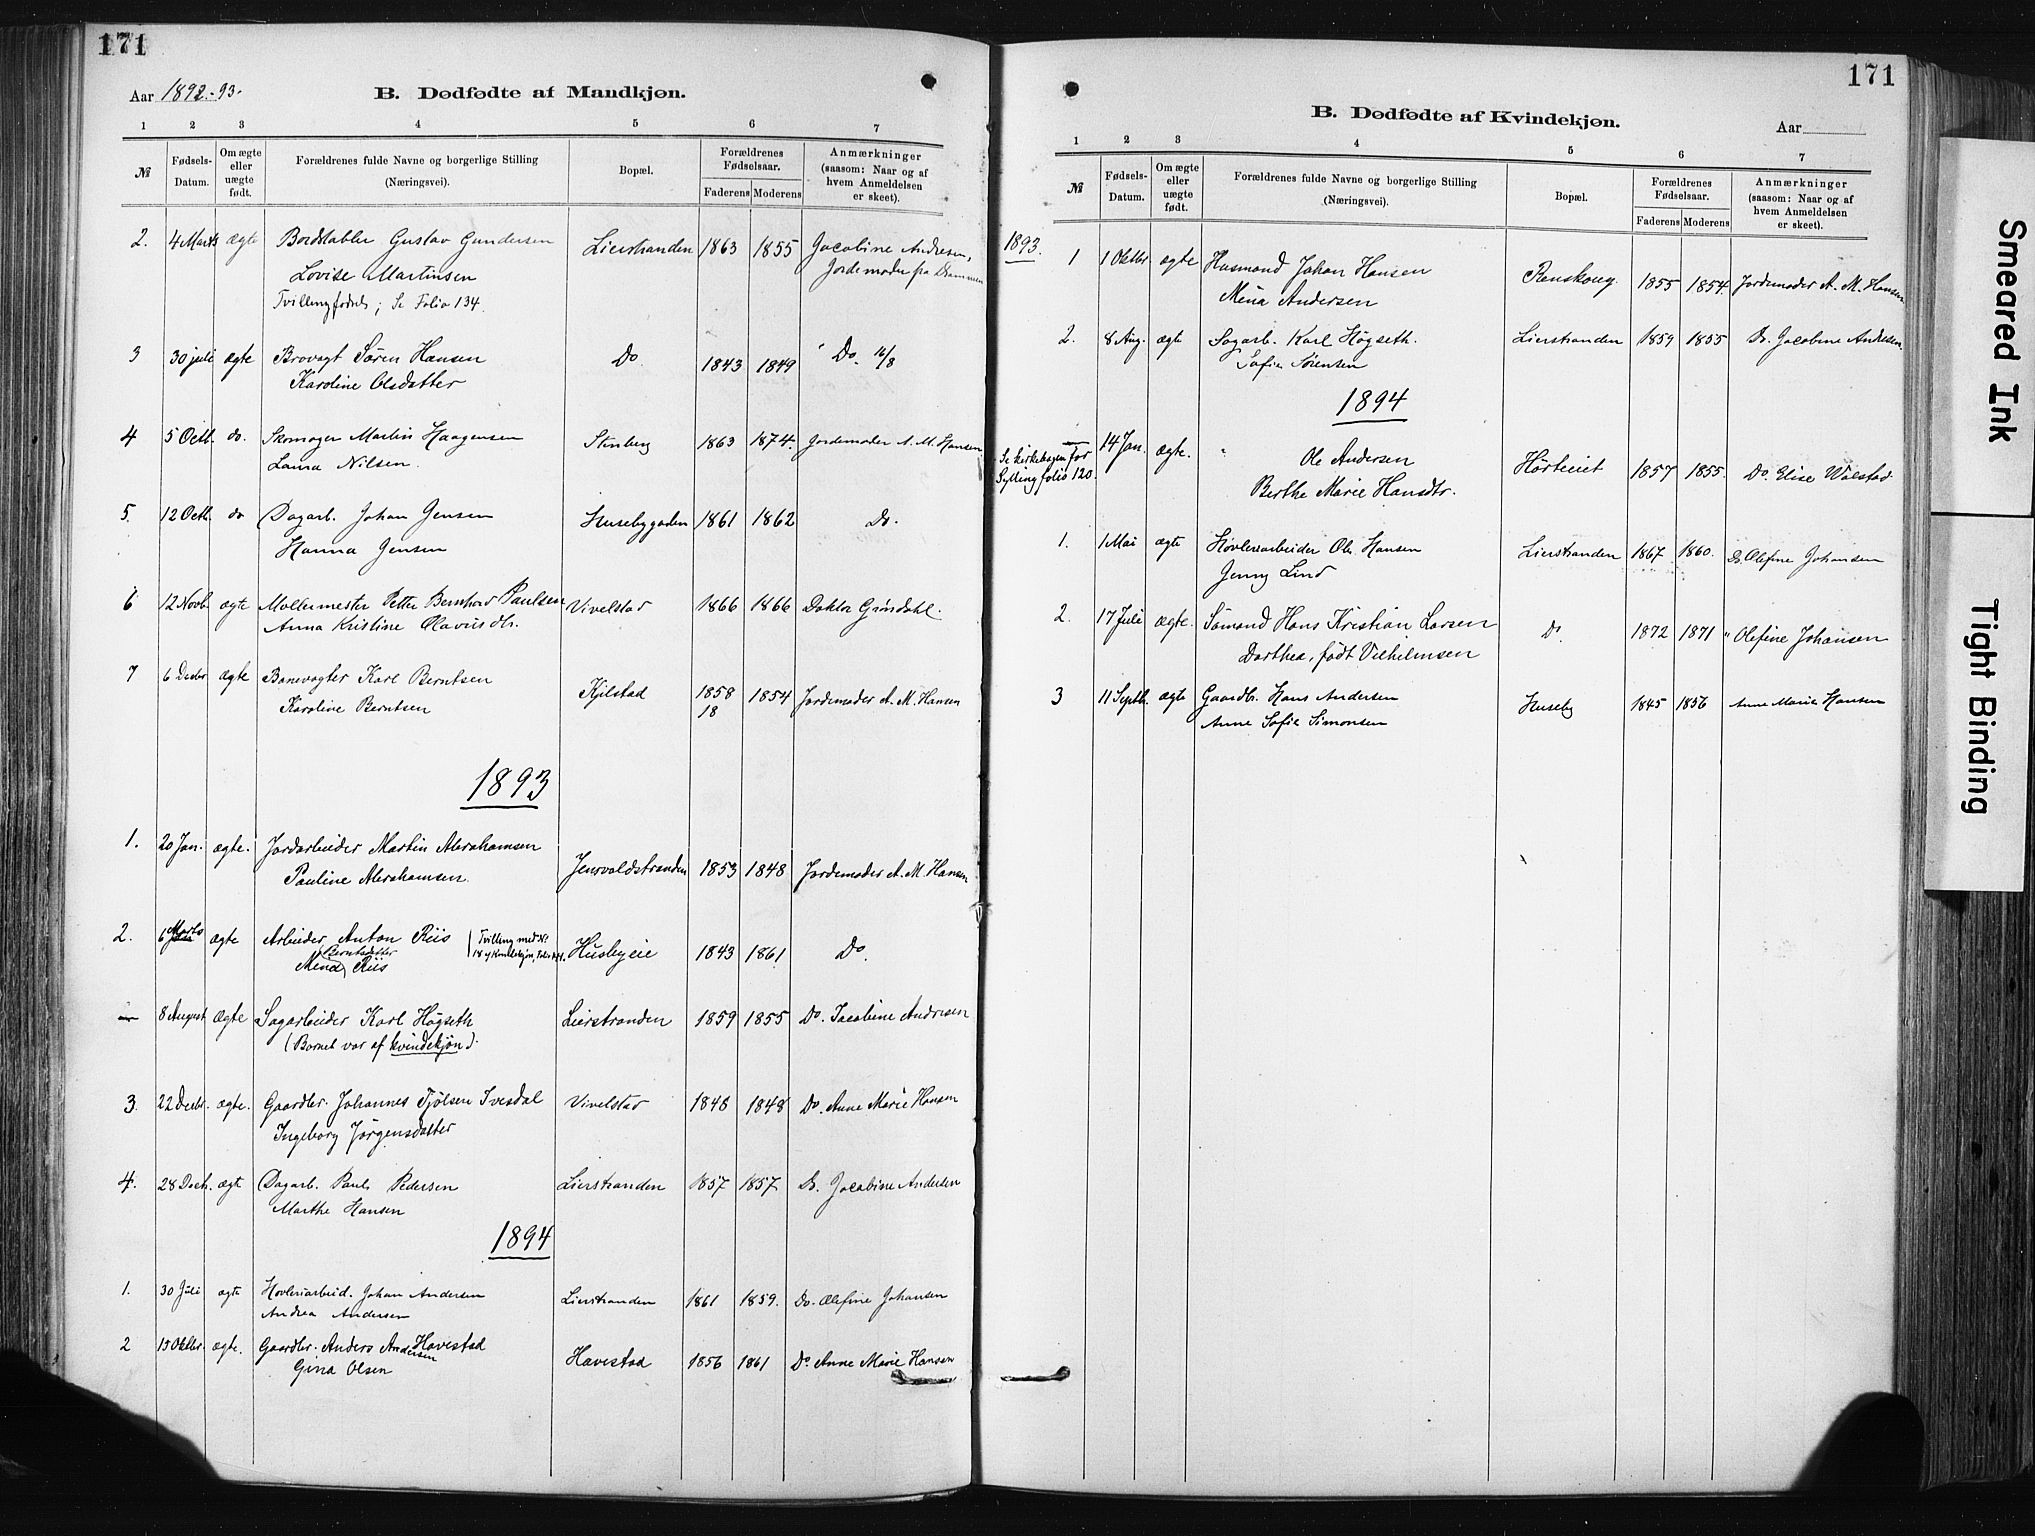 171
Aar 1892-93.
B. Dødfødte af Mandkjøn.
1 2 3 4 5 6 7
№ Fødsels-Datum. Om ægte eller uægte født. Forældrenes fulde Navne og borgerlige Stilling (Næringsvei). Bopæl. Forældrenes Fødselsaar. Faderens Moderens Anmærkninger (saasom: Naar og af hvem Anmeldelsen er skeet).
2. 4 Marts ægte Bordstabler Gustav Gundersen Lierstranden 1863 1855 Jacobine Andresen,
Lovise Martinsen Jordemoder fra Drammen
Tvillingfødsel; Se Folio 134.
3 30 juli ægte Brovagt Søren Hansen Do 1843 1849 Do. 16/8
Karoline Olsdatter
4 5 Octb. do. Skomager Martin Haagensen Stenberg 1863 1874. Jordemoder A. M. Hansen
Laura Nilsen.
5. 12 Octb. do Dagarb. Johan Jensen Husebygaden 1861 1862 Do.
Hanna Jensen
6 12 Novb. ægte Møllermester Petter Bernhard Paulsen Vivelstad 1866 1866 Doktor Grøndahl.
Anna Kristine Olavusdtr.
7 6 Decbr ægte Banevogter Karl Berntsen Kjilstad 1858 1854 Jordemoder A. M. Hansen
Karoline Berntsen 18
1893
1. 20 Jan. ægte. Jordarbeider Martin Abrahamsen Jensvoldstranden 1853 1848 Jordemoder A. M. Hansen
Pauline Abrahamsen.
2. 6 Marts ægte Arbeider Anton Riis Tvilling med № Husebyeie 1843 1861 Do.
Berntsdatter
Mina Riis
— 8 August ægte Sagarbeider Karl Høgseth Lierstranden 1859 1855 Do. Jacobine Andresen
(Barnet var af kvindekjøn).
3. 22 Decbr. ægte. Gaardbr. Johannes Tjølsen Ivesdal Vivelstad 1848 1848 Do. Anne Marie Hansen
Ingeborg Jørgensdatter
4. 28 Decb. ægt Dagarb. Paul Pedersen Lierstranden 1857 1857 Do. Jacobine Andersen
Marthe Hansen
1894
1. 30 Juli ægte Høvleriarbeid. Johan Andersen Lierstranden 1861 1859. Do. Olefine Johansen
Andrea Andersen
2 15 Oktbr. ægte. Gaardbr. Anders Andersen Havestad Havestad 1856 1861 Do Anne Marie Hansen
Gina Olsen
171
B. Dødfødte af Kvindekjøn.
Aar
1 2 3 4 5 6 7
№ Fødsels-Datum. Om ægte eller uægte født. Forældrenes fulde Navne og borgerlige Stilling (Næringsvei). Bopæl. Forældrenes Fødselsaar. Faderens Moderens Anmærkninger (saasom: Naar og af hvem Anmeldelsen er skeet).
1893.
1 1 Oktbr. ægte Husmand Johan Hansen Renskoug. 1855 1854. Jordemoder A. M. Hansen
Mina Andersen
2. 8 Aug. ægte Sagarb. Karl Høgseth. Lierstranden 1859 1855 Do. Jacobine Andresen.
Sofie Sørensen
1894
— 14 Jan. ægte. Ole Andersen Hørteeiet 1857 1855. Do. Elise Wolstad.
Se kirkebogen for
Sylling folio 120. Berthe Marie Hansdtr.
1. 1 Mai ægte Høvleriarbeider Ole Hansen Lierstranden 1867 1860. Do. Olefine Johansen
Jenny Lind
2. 17 Juli ægte. Sömand Hans Kristian Larsen Do. 1872 1871 " Olefine Johansen
Dorthea, født Vilhelmsen
3 11 Septb. ægte Gaardbr. Hans Andersen Huseby 1845 1856 Anne Marie Hansen
Anne Sofie Simonsen
Smeared Ink
Tight Binding